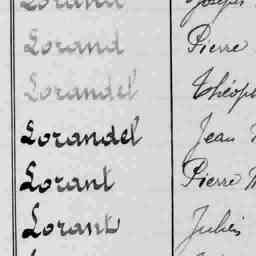 Lorand
Lorand Pierre
Lorandel
Lorandel Jean
Lorant Pierre
Lorant Jules